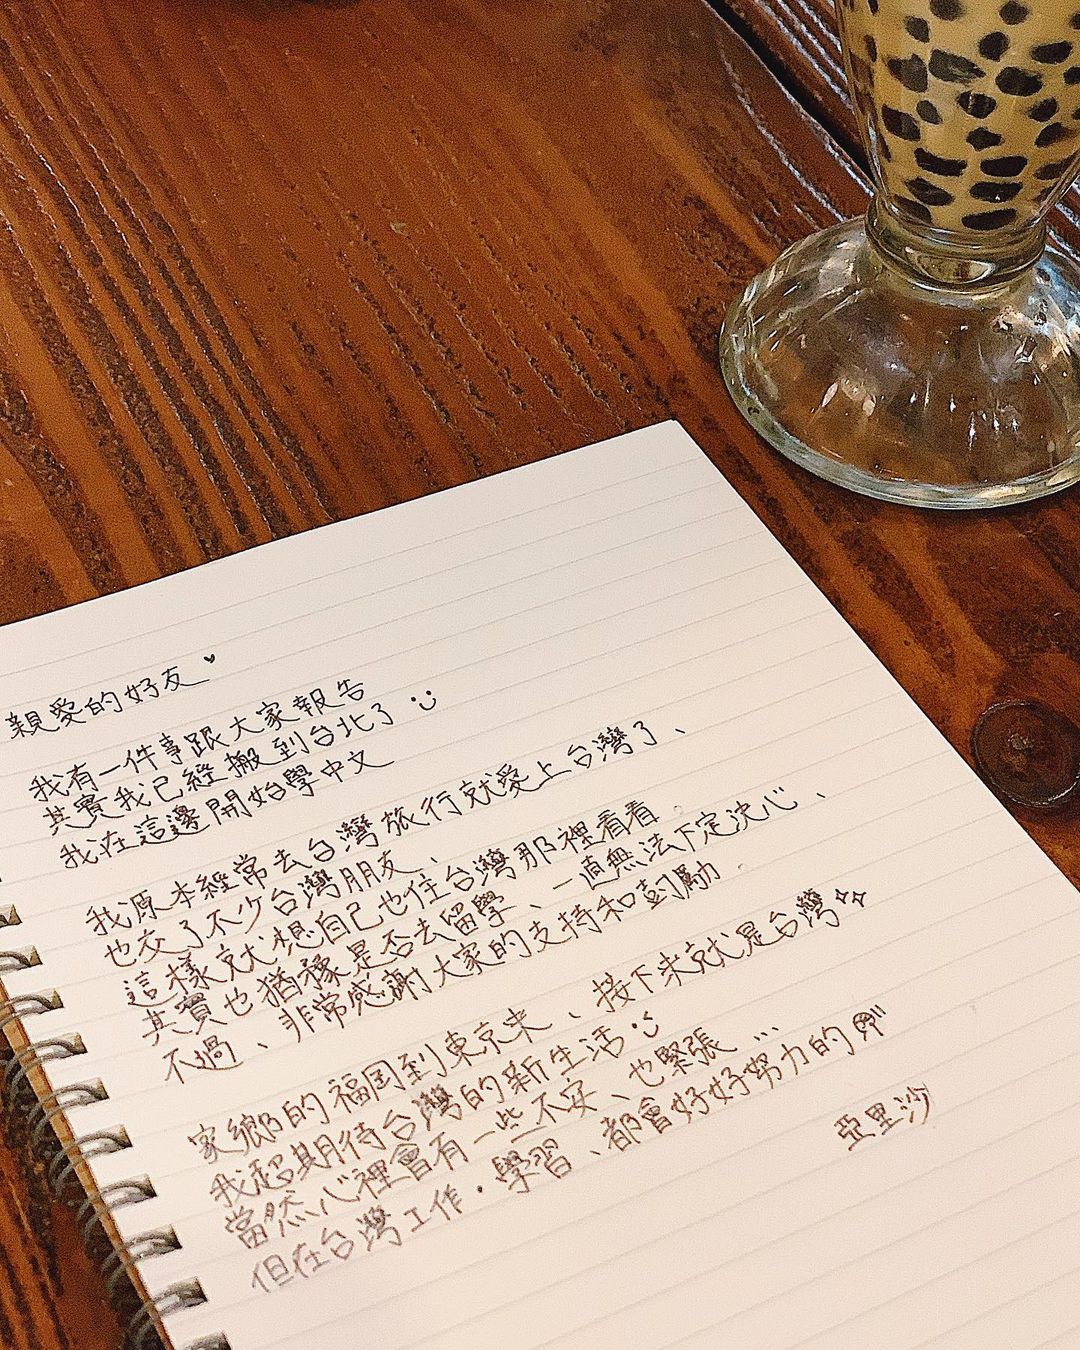 親愛的好友
我有一件事跟大家報告
其實我已經搬到台北了
我在這邊開始學中文
我原本經常去台灣旅行就愛上台灣了、
也交了不少台灣朋友、
這樣就想自己也住台灣那裡看看
其實也猶豫是否去留學、一直無法下定決心、
不過、非常感謝大家的支持和鼓勵
家鄉的福岡到東京來、接下來就是台灣
我超期待台灣的新生活
當然心裡會有一些不安、也緊張...
但在台灣工作・學習、都會好好努力的
亞里沙